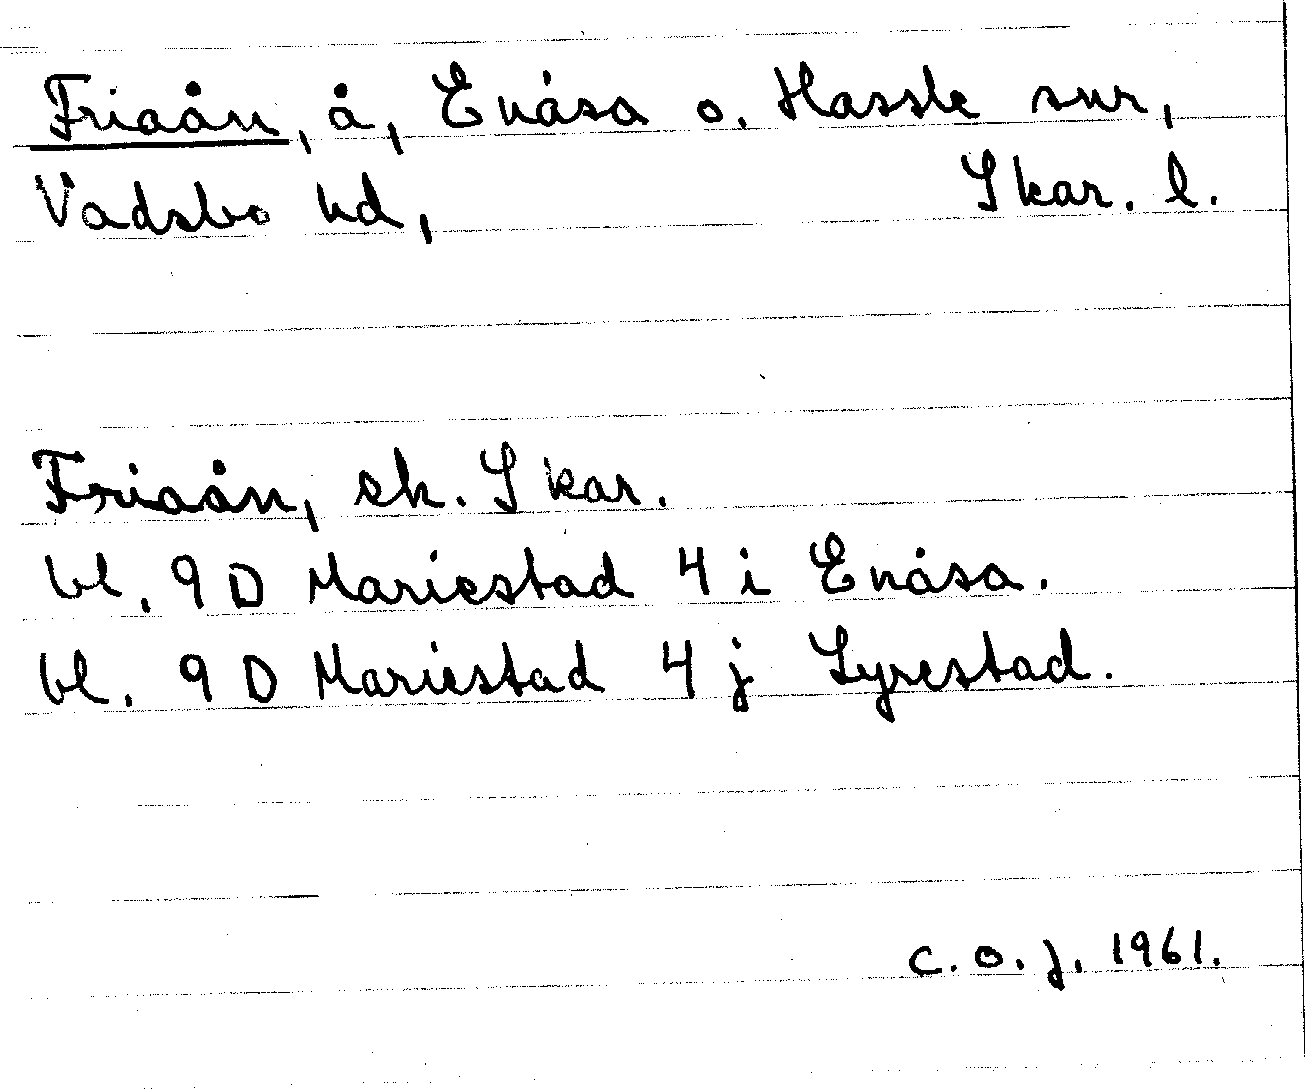 Friaån, å, Enåsa o. Hassle snr,
Vadsbo hd, Skar. l.
Friaån, ek. Skar.
bl. 9 D Mariestad 4 i Enåsa.
bl. 9 D Mariestad 4 j Lyrestad.
C. O. J. 1961.